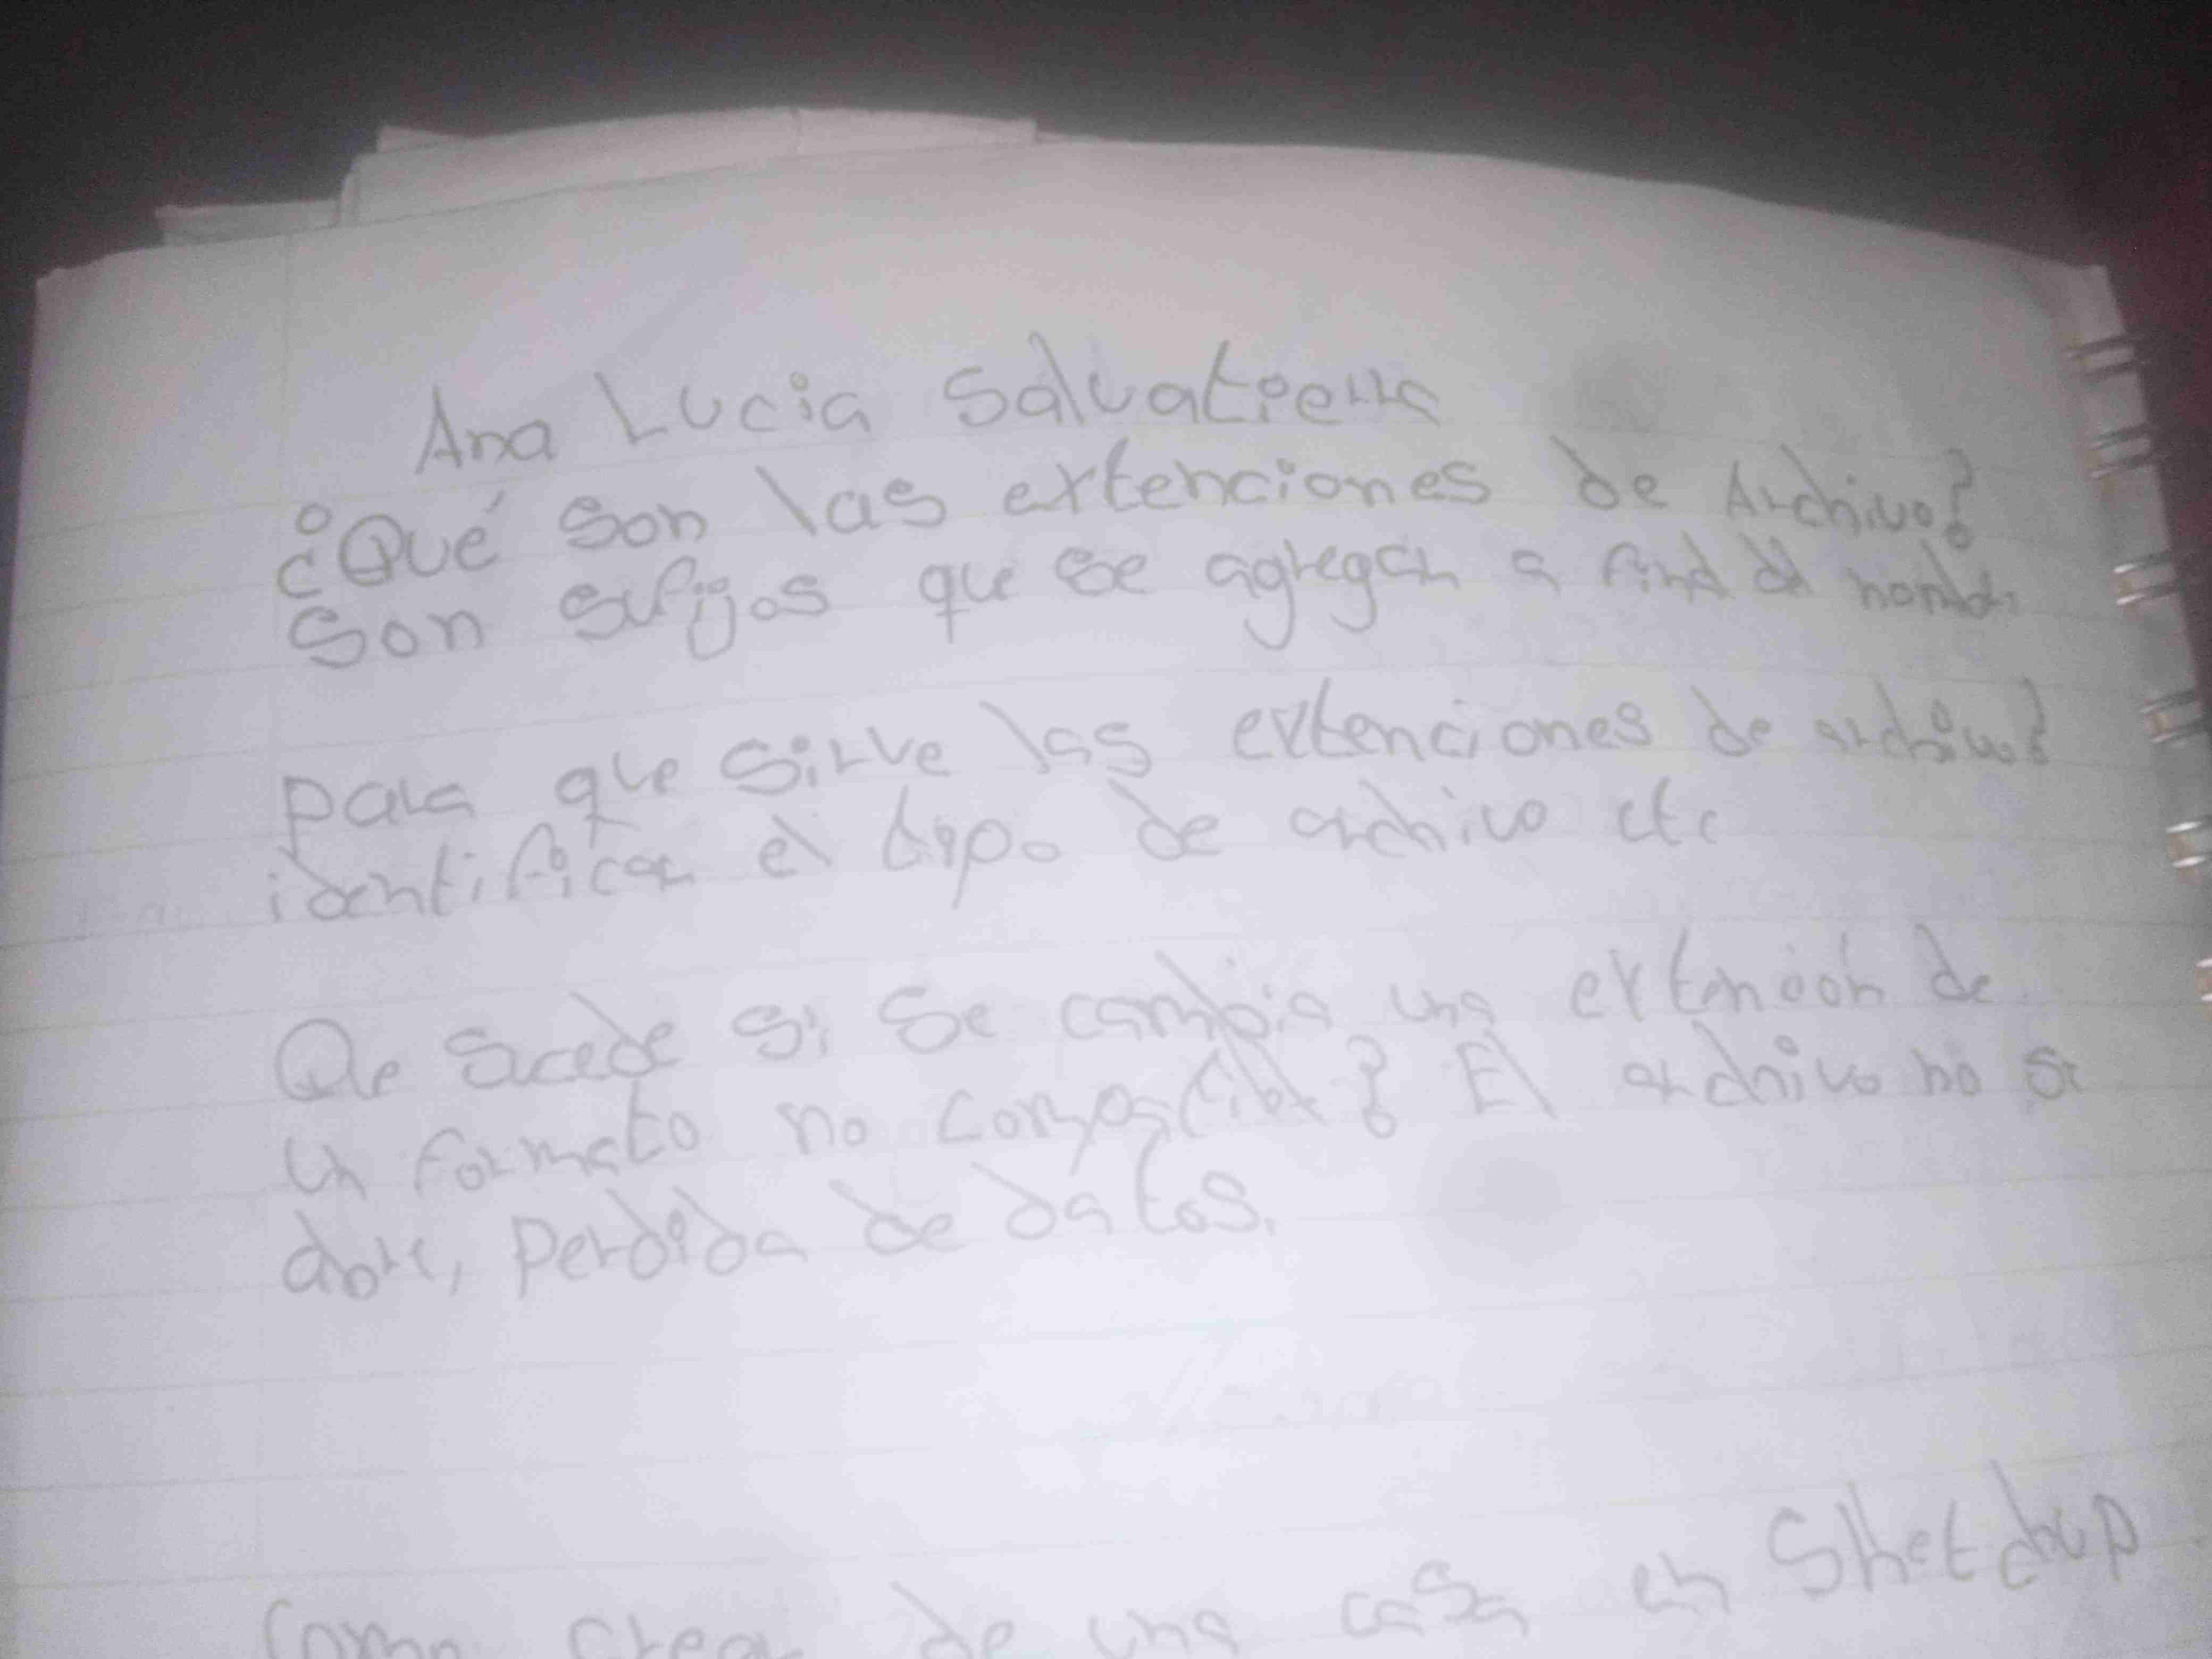 Ana Lucia Salvatierra
¿Qué son las extenciones de Archivo?
Son sufijos que se agregan a final del nombre
para que sirve las extenciones de archivo?
identificar el tipo de archivo etc
Que sucede si se cambia una extencion de
un formato no compatible? El archivo no se
abre, perdida de datos.
Como crear de una casa en Shetchup